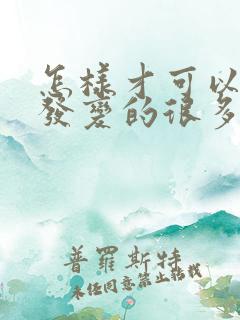 怎樣才可以
發變的很多
普羅斯特
未经同意禁止转载